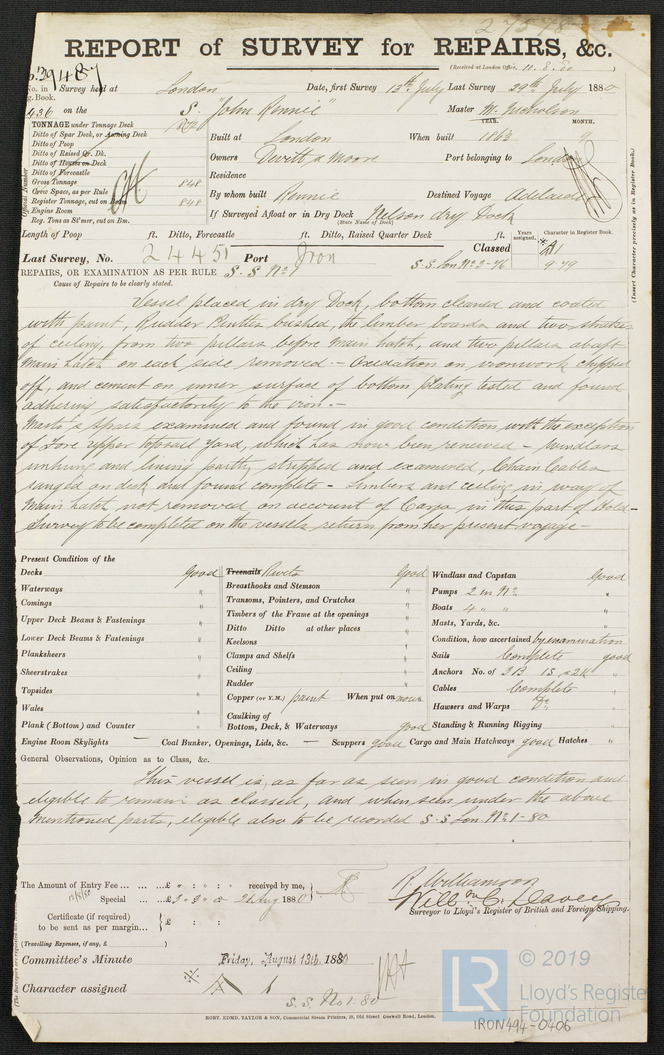 27578
REPORT of SURVEY for REPAIRS, &c.
(Received at London Office, 11.8.80)
No. in Survey held at London Date, first Survey 13th July Last Survey 29th July 1880
Reg. Book.
436 on the S. "John Rennie" Master M. Nicholson
TONNAGE under Tonnage Deck YEAR. MONTH.
Ditto of Spar Deck, or Awning Deck Built at London When built 1863
Ditto of Poop
Ditto of Raised Qr. Dk. Owners Devitt & Moore Port belonging to London
Ditto of Houses on Deck
Ditto of Forecastle Residence
Gross Tonnage 848
Crew Space, as per Rule By whom built Rennie Destined Voyage Adelaide
Register Tonnage, cut on Beam 848
Engine Room If Surveyed Afloat or in Dry Dock Nelson dry Dock
Reg. Tons as St'mer, cut on Bm. (State Name of Dock)
Official Number
(Insert Character precisely as in Register Book.)
Length of Poop ft. Ditto, Forecastle ft. Ditto, Raised Quarter Deck ft. Years assigned. Character in Register Book.
Last Survey, No. 24451 Port Iron Classed A1
S.S. Lon No 2-76 9.79
REPAIRS, OR EXAMINATION AS PER RULE S.S. No 1
Cause of Repairs to be clearly stated.
Vessel placed in dry Dock, bottom cleaned and coated
with paint, Rudder Pintles bushed, the limber boards and two strakes
of ceiling, from two pillars before main hatch, and two pillars abaft
main hatch on each side removed. - Oxidation on ironwork chipped
off, and cement on inner surface of bottom plating tested and found
adhering satisfactorily to the iron. -
Masts & spars examined and found in good condition, with the exception
of Fore upper topsail Yard, which has now been renewed - Windlass
unhung and lining partly stripped and examined, Chain Cables
ranged on deck and found complete - Limbers and ceiling in way of
Main hatch not removed on account of Cargo in this part of Hold -
Survey to be completed on the vessels return from her present voyage -
Present Condition of the
Decks Good
Waterways "
Comings "
Upper Deck Beams & Fastenings "
Lower Deck Beams & Fastenings "
Planksheers "
Sheerstrakes "
Topsides "
Wales "
Plank (Bottom) and Counter "
Treenails Rivets Good
Breasthooks and Stemson "
Transoms, Pointers, and Crutches "
Timbers of the Frame at the openings "
Ditto Ditto at other places "
Keelsons "
Clamps and Shelfs "
Ceiling "
Rudder "
Copper (or Y.M.) paint When put on now
Caulking of
Bottom, Deck, & Waterways good
Windlass and Capstan Good
Pumps 2 in No "
Boats 4 " " "
Masts, Yards, &c. "
Condition, how ascertained by examination
Sails Complete good
Anchors No. of 3B 1S & 2K "
Cables Complete "
Hawsers and Warps Do "
Standing & Running Rigging "
Engine Room Skylights — Coal Bunker, Openings, Lids, &c. — Scuppers good Cargo and Main Hatchways good Hatches "
General Observations, Opinion as to Class, &c.
This vessel is, as far as seen in good condition and
eligible to remain as classed, and when seen under the above
mentioned parts, eligible also to be recorded S.S. Lon. No 1-80
The Amount of Entry Fee ... £ : : received by me,
Special ... £3 : 3 : 0 21 Aug 1880
Certificate (if required)
to be sent as per margin... £ : :
(Travelling Expenses, if any, £ )
R. Williamson
Will m C. Davey
Surveyor to Lloyd's Register of British and Foreign Shipping.
Committee's Minute Friday, August 13th, 1880
Character assigned A 1
S.S. No 1.80
ROBT. EDMD. TAYLOR & SON, Commercial Steam Printers, 19, Old Street Goswell Road, London.
© 2019
LR
Lloyd's Register
Foundation
IRON494-0406